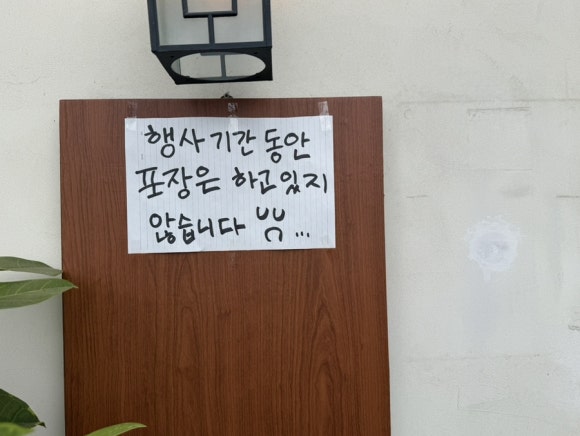 행사 기간 동안
포장은 하고 있지
않습니다 ㅠㅠ ...